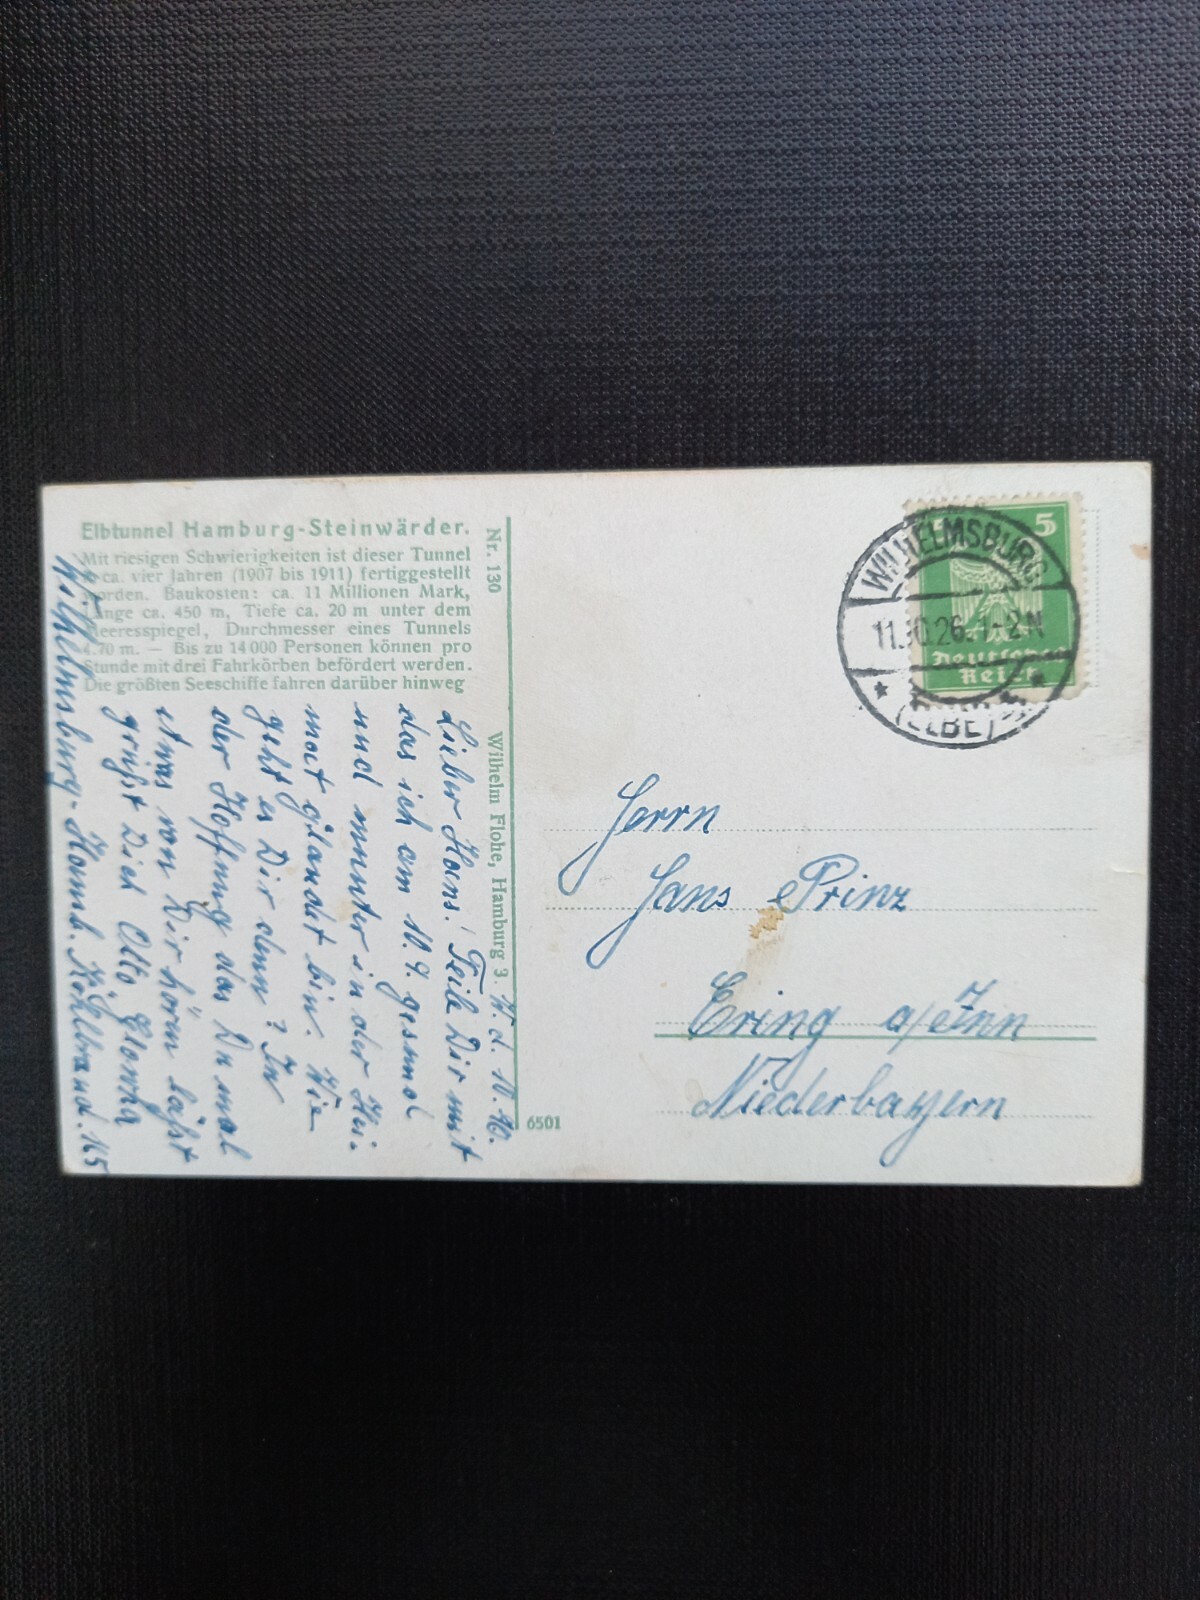 Elbtunnel Hamburg-Steinwärder.
Mit riesigen Schwierigkeiten ist dieser Tunnel
ca. vier Jahren (1907 bis 1911) fertiggestellt
worden. Baukosten: ca. 11 Millionen Mark,
Länge ca. 450 m, Tiefe ca. 20 m unter dem
Meeresspiegel, Durchmesser eines Tunnels
4.70 m. — Bis zu 14000 Personen können pro
Stunde mit drei Fahrkörben befördert werden.
Die größten Seeschiffe fahren darüber hinweg
Nr. 130
Wilhelm Flohe, Hamburg 3.
6501
H. d. 10. 10.
Lieber Hans! Teile Dir mit
das ich am 10.9. gesund
und munter in der Hei-
mat gelandet bin. Wie
geht es Dir denn? In
der Hoffnung das Du mal
etwas von Dir hören läßt
grüßt Dich Otto
Wilhelmsburg-Hamb. Köhlbrand. 165
5
Deutsches
Reich
WILHELMSBURG
11.10.26. 1-2 N
(ELBE)
Herrn
Hans Prinz
Ering a/Inn
Niederbayern